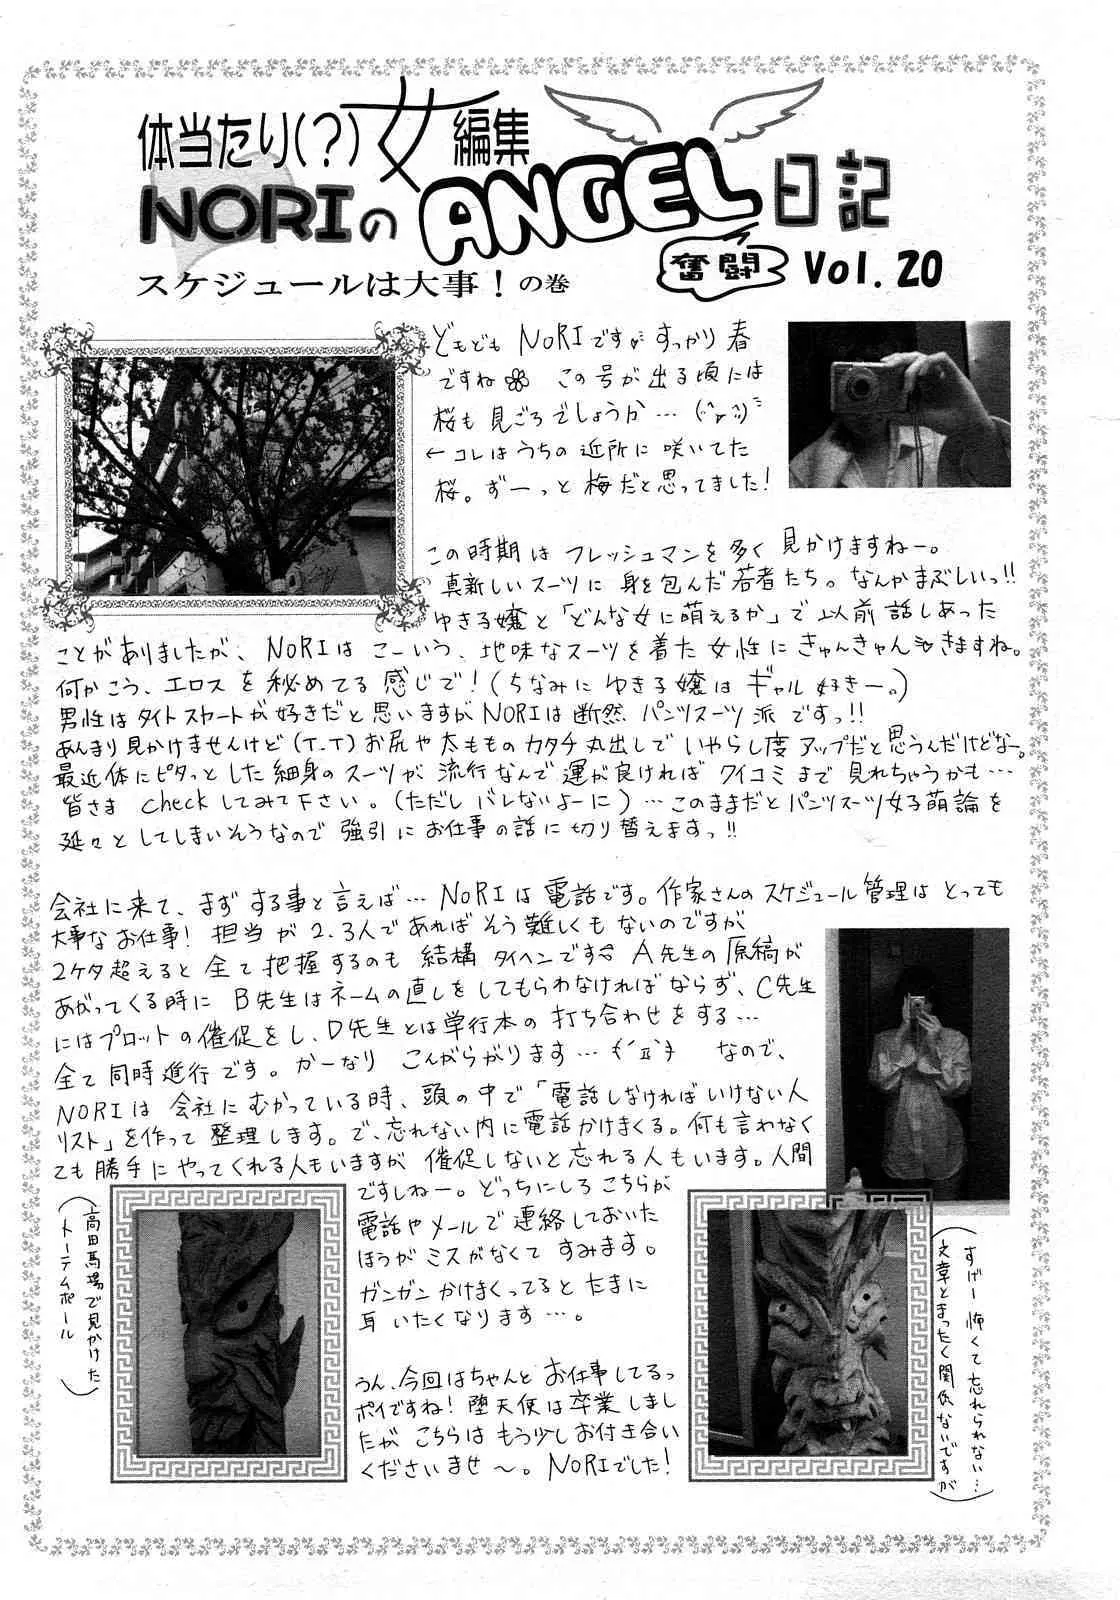 体当たり(?)女編集
NORIのANGEL日記
奮闘
Vol.20
スケジュールは大事！の巻
どもども NORIですが すっかり春
ですね この号が出る頃には
桜も見ごろでしょうか…
←コレはうちの近所に咲いてた
桜。ずーっと梅だと思ってました!
この時期は フレッシュマンを多く 見かけますねー。
真新しいスーツに身を包んだ若者たち。なんかまぶしいっ!!
ゆき子嬢と「どんな女に萌えるか」で以前話しあった
ことがありましたが、NORIは こーいう、地味なスーツを着た女性にきゅんきゅんきますね。
何かこう、エロスを秘めてる感じで!(ちなみにゆき子嬢はギャル好きー。)
男性はタイトスカートが好きだと思いますがNORIは断然パンツスーツ派ですっ!!
あんまり見かけませんけど(T_T)お尻や太もものカタチ丸出しでいやらし度アップだと思うんだけどなー。
最近体にピタっとした細身のスーツが流行なんで運が良ければクイコミまで見れちゃうかも…
皆さま checkしてみて下さい。(ただしバレないよーに)…このままだとパンツスーツ女子萌論を
延々としてしまいそうなので強引にお仕事の話に切り替えますっ!!
会社に来て、まずする事と言えば…NORIは電話です。作家さんのスケジュール管理はとっても
大事なお仕事! 担当が2、3人であればそう難しくもないのですが
2ケタ超えると全て把握するのも結構タイヘンです A先生の原稿が
あがってくる時にB先生はネームの直しをしてもらわなければならず、C先生
にはプロットの催促をし、D先生とは単行本の打ち合わせをする…
全て同時進行です。かーなりこんがらがります… なので、
NORIは会社にむかっている時、頭の中で「電話しなければいけない人
リスト」を作って整理します。で、忘れない内に電話かけまくる。何も言わなく
ても勝手にやってくれる人もいますが催促しないと忘れる人もいます。人間
ですしねー。どっちにしろこちらが
電話やメールで連絡しておいた
ほうがミスがなくてすみます。
ガンガンかけまくってるとたまに
耳いたくなります…。
うん、今回はちゃんとお仕事してるっ
ポイですね! 堕天使は卒業しまし
たがこちらはもう少しお付き合い
くださいませ〜。NORIでした!
(高田馬場で見かけた
トーテムポール)
(すげー怖くて忘れられない…
文章とまったく関係ないですが)